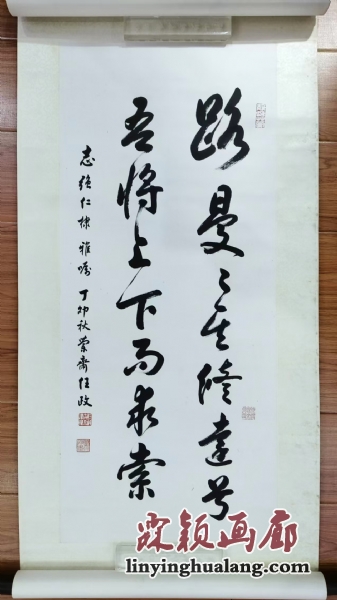 路曼〻其修遠兮
吾将上下而求索
志强仁棣雅嘱 丁卯秋蘭齋任政
霖颖画廊
linyinghualang.com